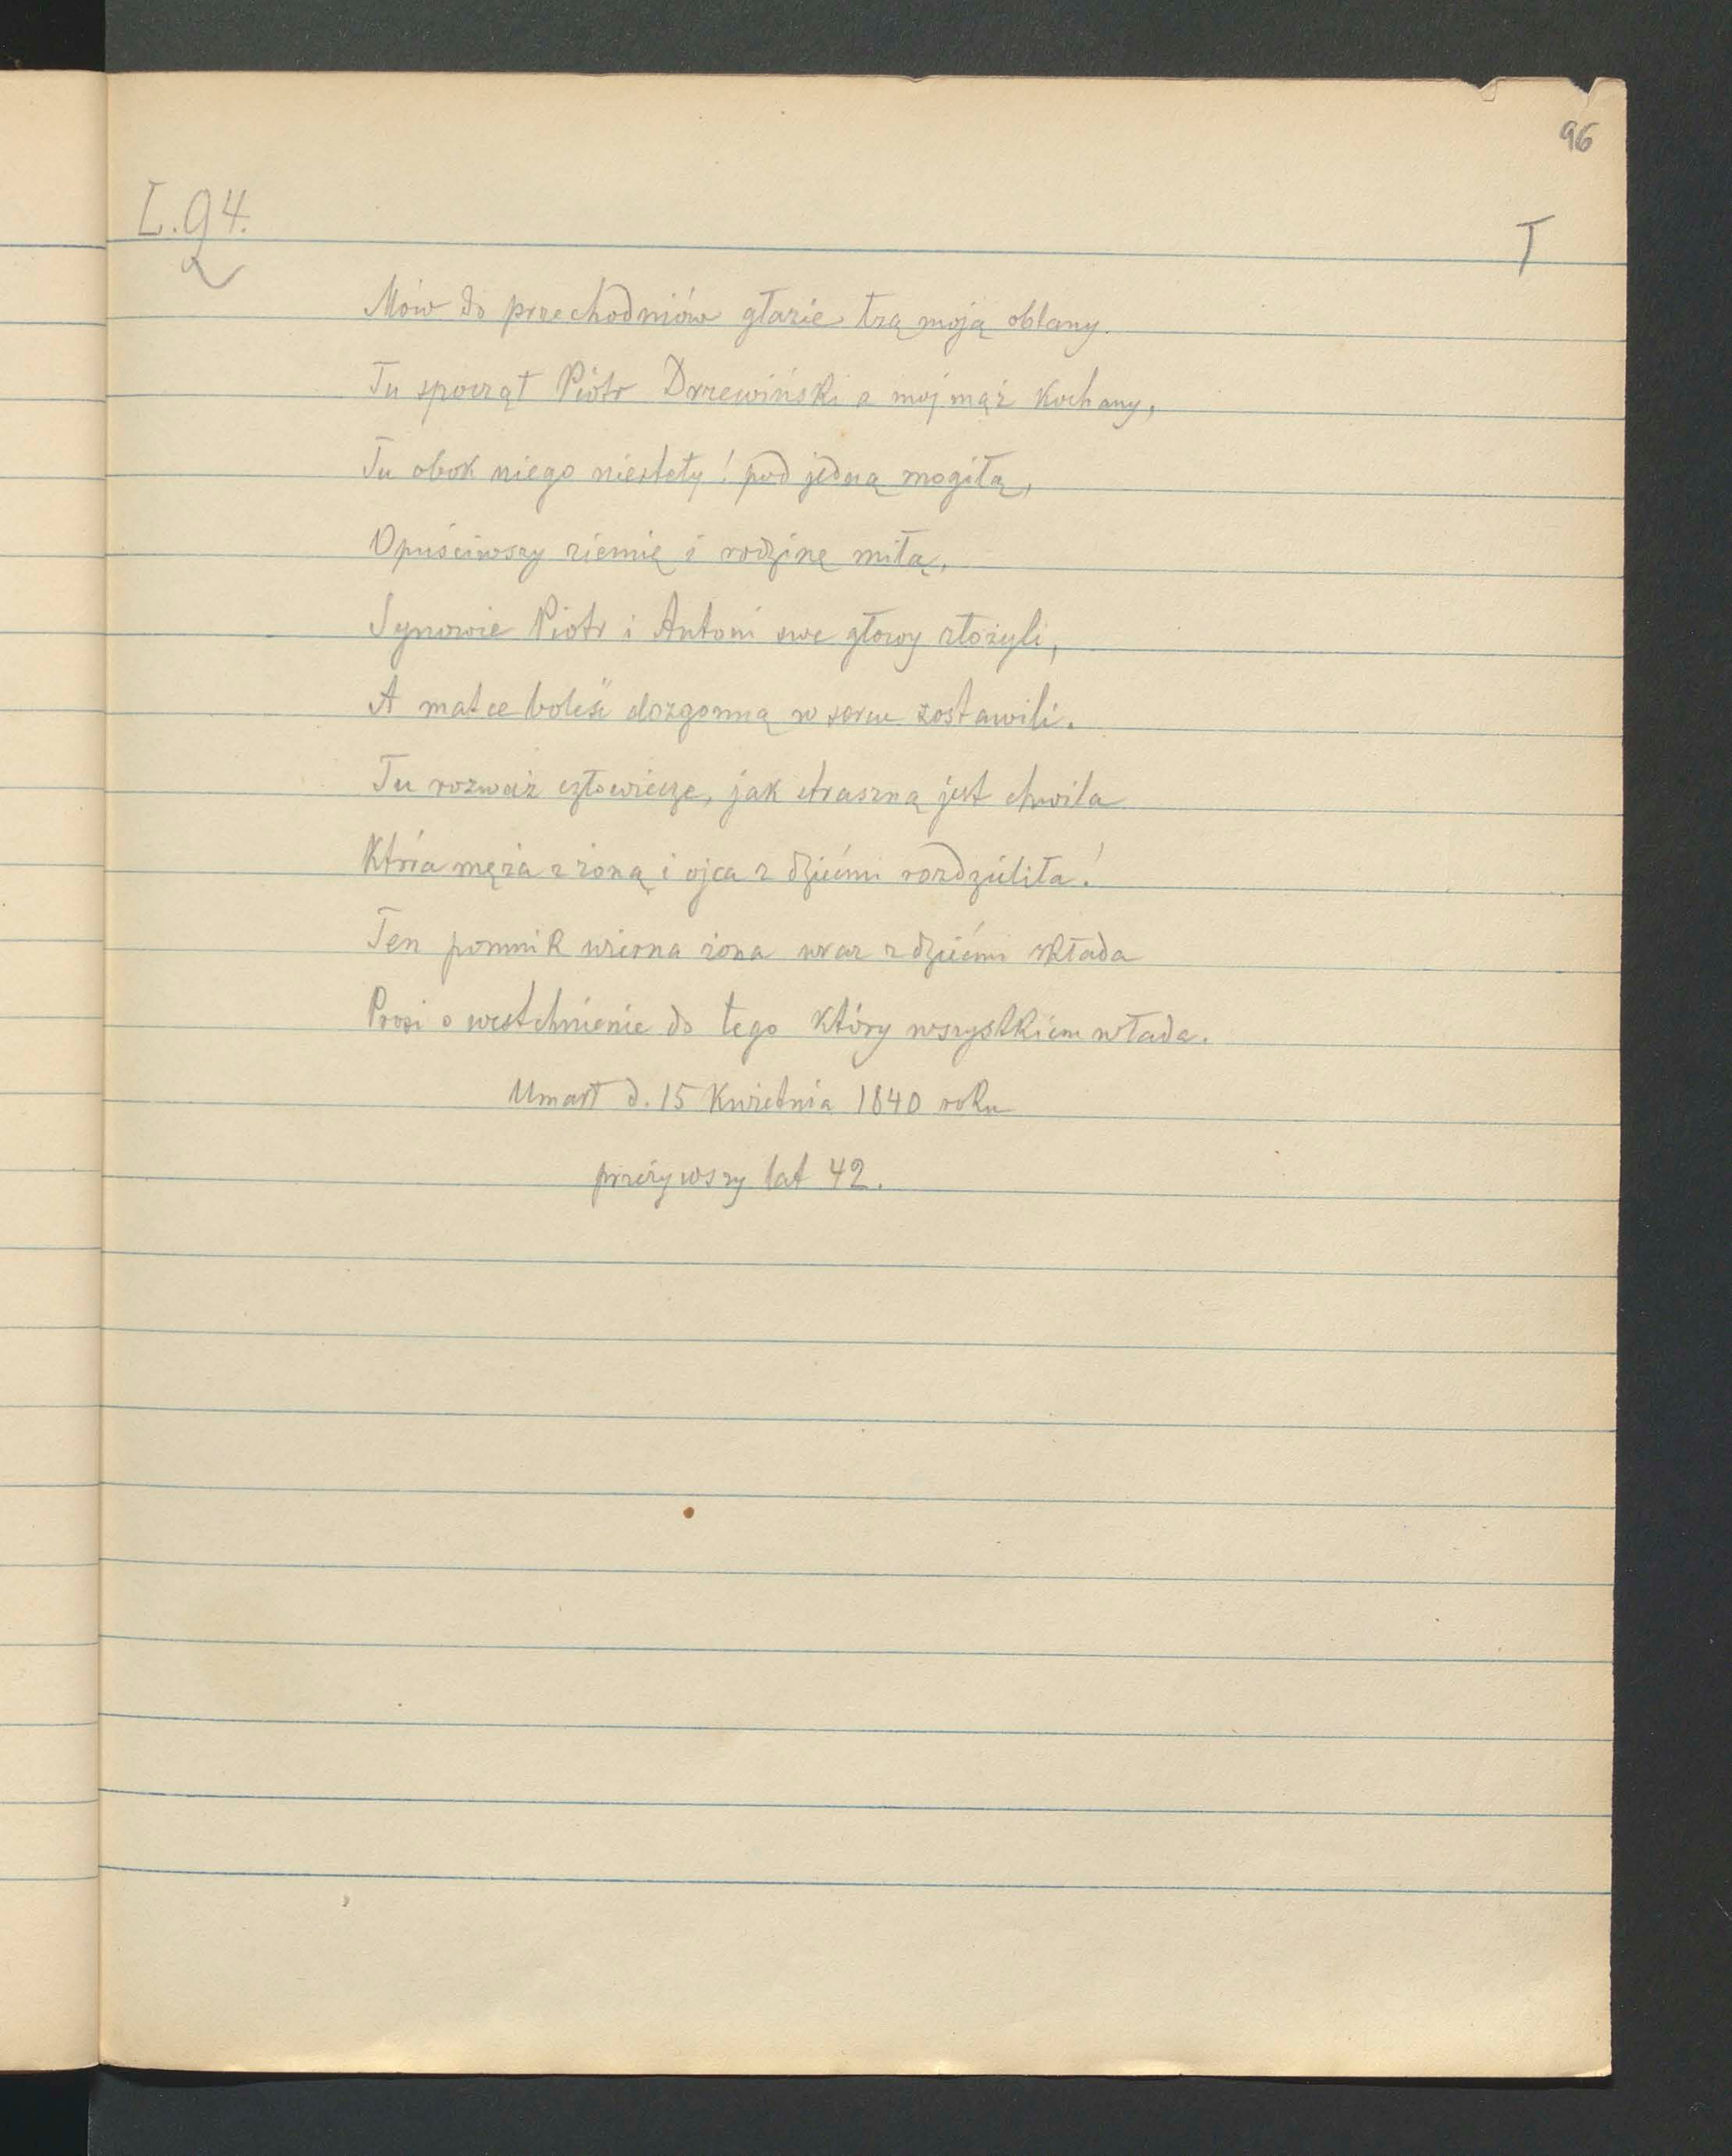 96
L.94.
T
Mów do przechodniów głazie łzą moją oblany.
Tu spoczął Piotr Drzewiński a mój mąż kochany,
Tu obok niego niestety! pod jedną mogiłą,
Opuściwszy ziemię i rodzinę miłą,
Synowie Piotr i Antoni swe głowy złożyli,
A matce boleść dozgonną w sercu zostawili.
Tu rozważ człowiecze, jak straszną jest chwila
Która męża z żoną i ojca z dziećmi rozdzieliła!
Ten pomnik wierna żona wraz z dziećmi składa
Prosi o westchnienie do tego który wszystkiem włada.
Umarł d. 15 Kwietnia 1840 roku
przeżywszy lat 42.